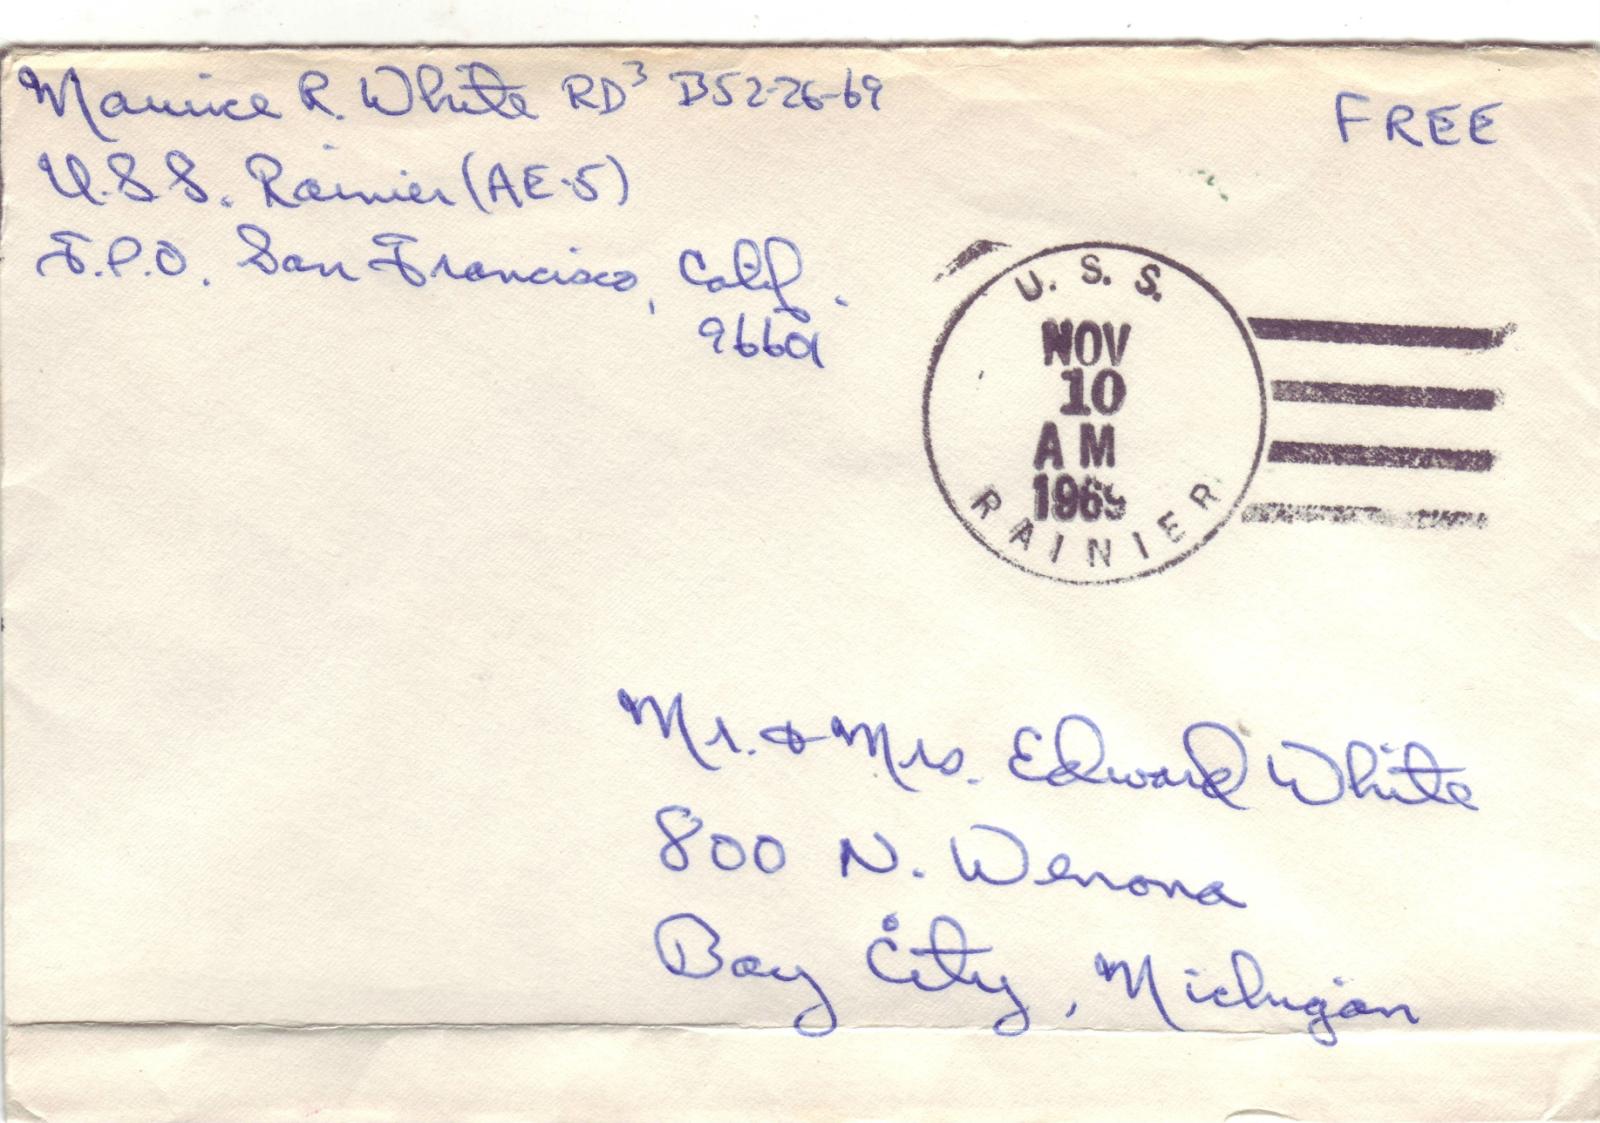 Maurice R. White RD3 B52-26-69
U.S.S. Rainier (AE-5)
F.P.O. San Francisco, Calif.
96601
FREE
U.S.S.
NOV
10
AM
1969
RAINIER
Mr. & Mrs. Edward White
800 N. Wenona
Bay City, Michigan